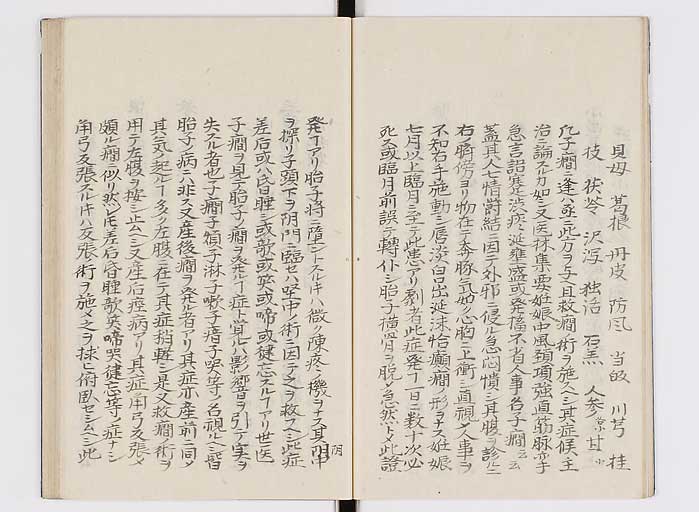 貝母 葛根 丹皮 防風 当皈 川芎 桂
枝 茯苓 沢瀉 独活 石羔 人参 甘
凡子癇ニ逢ハ亟ニ此方ヲ与且救癇ノ術ヲ施スヘシ其症候主
治ヲ論スルカ如シ又医林集要妊娠中風頚項強直筋脉
急言語蹇渋痰涎壅盛或発搐不省人事名子癇云云
蓋其人七情欝結ニ因テ外邪ニ侵ル急悶憒シ其腹ヲ診ルニ
右ノ臍傍ヨリ物在テ奔豚気如ク心胸ニ上衝シ直視メ人事ヲ
不知右手施動シ唇淡白口出涎沫恰癲癇ノ形ヲナス妊娠
七月以上臨月ニ至テ此患アリ劇者此症発丁一日ニ数十次必
死ス或臨月前誤テ轉仆シ胎子横骨ヲ脱シ忽然トメ此證
発丁アリ胎子将ニ墮ントスル片ハ微ク陳疼ノ機ヲナス其陰中
ヲ探リ子頭下ヲ陰門ニ臨セハ坐中ノ術ニ因テ之ヲ救フヘシ此症
差后或ハ昏睡シ或歌或笑或啼或健忘スル丁アリ世医
子癇ヲ見テ胎子ノ癇ヲ発ル丁症ト寛ルハ影響ヲ引テ実ヲ
失スル者也子癇子煩子淋子嗽子瘖子哭等ノ名視ルヘシ皆
胎子ノ病ニ非ス又産後癇ヲ発ル者アリ其症亦産前ニ同メ
其気ノ起ル丁多ク左腹ニ在テ其症稍軽シ是又救癇ノ術ヲ
用テ左腹ヲ按シ止ムヘシ又産后痙病アリ其症角弓反張メ
頗ル癇ニ似リ然レ𪜈差后昏睡歌笑啼哭健忘等ノ症ナシ
角弓反張スル片ハ反張ノ術ヲ施メ之ヲ抹ヒ俯臥セシムヘシ此